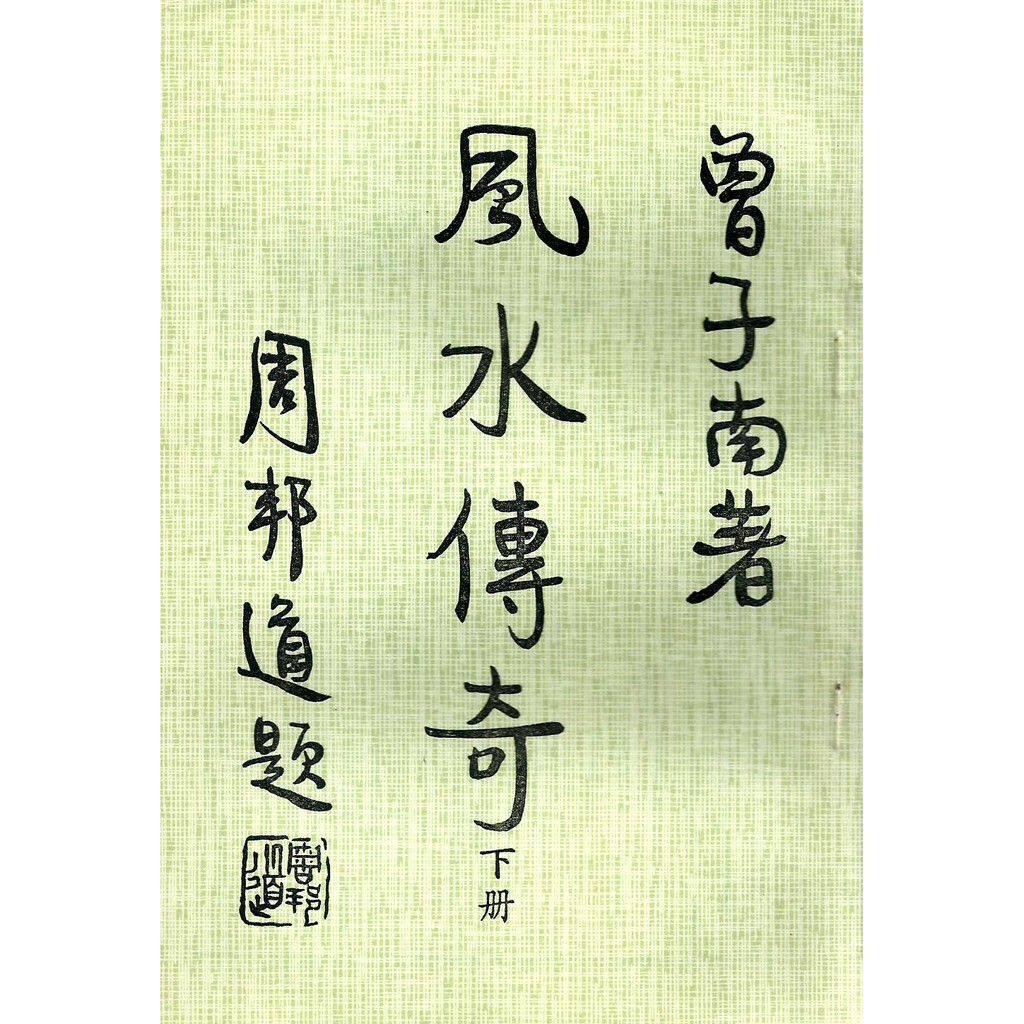 曾子南著
風水傳奇
下册
周邦道題